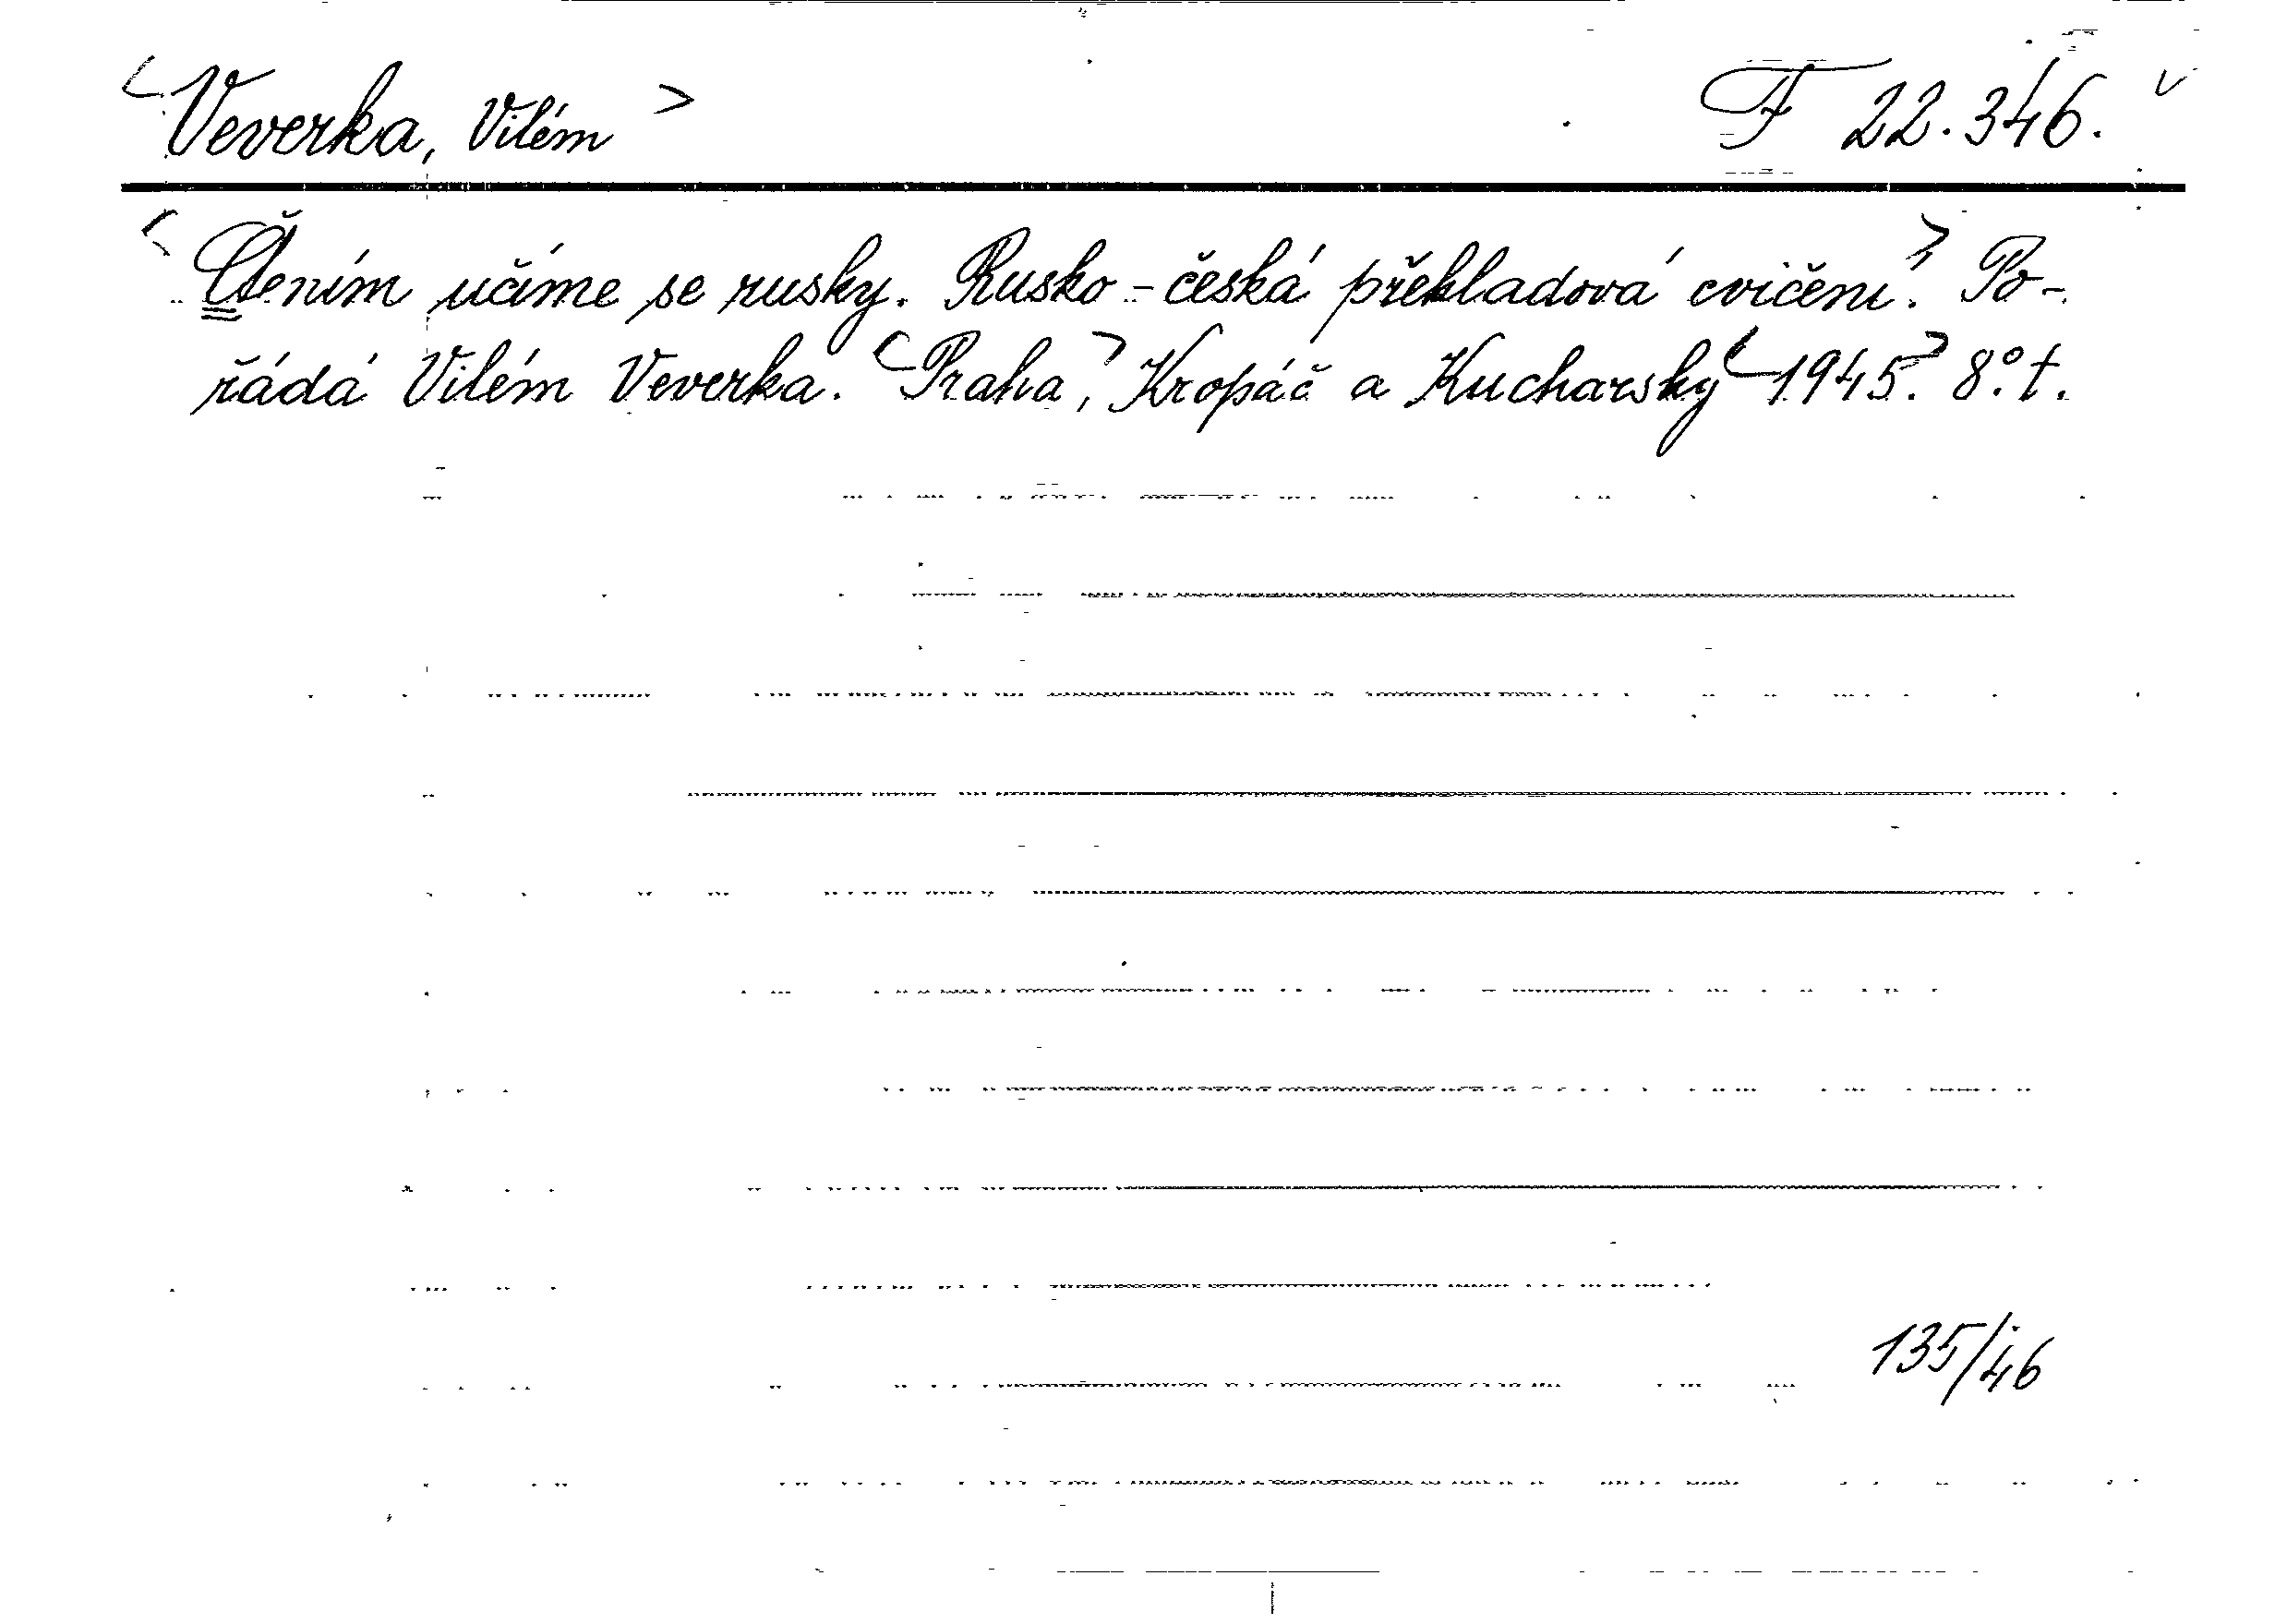 <Veverka, Vilém> F 22.346. v
<Čtením učíme se rusky. Rusko-česká překladová cvičení.> Po-
řádá Vilém Veverka. <Praha,> Kropáč a Kucharský <1945.> 8°. t.
135/46